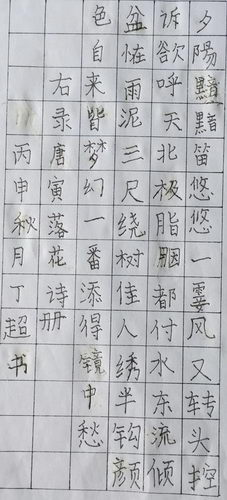 夕陽黯黯笛悠悠一霎风又转头控
诉欲呼天北极脂胭都付水东流倾
盆怯雨泥三尺绕树佳人绣半钩颜
色自来皆梦幻一番添得镜中愁
右录唐寅落花诗册
丙申秋月丁超书